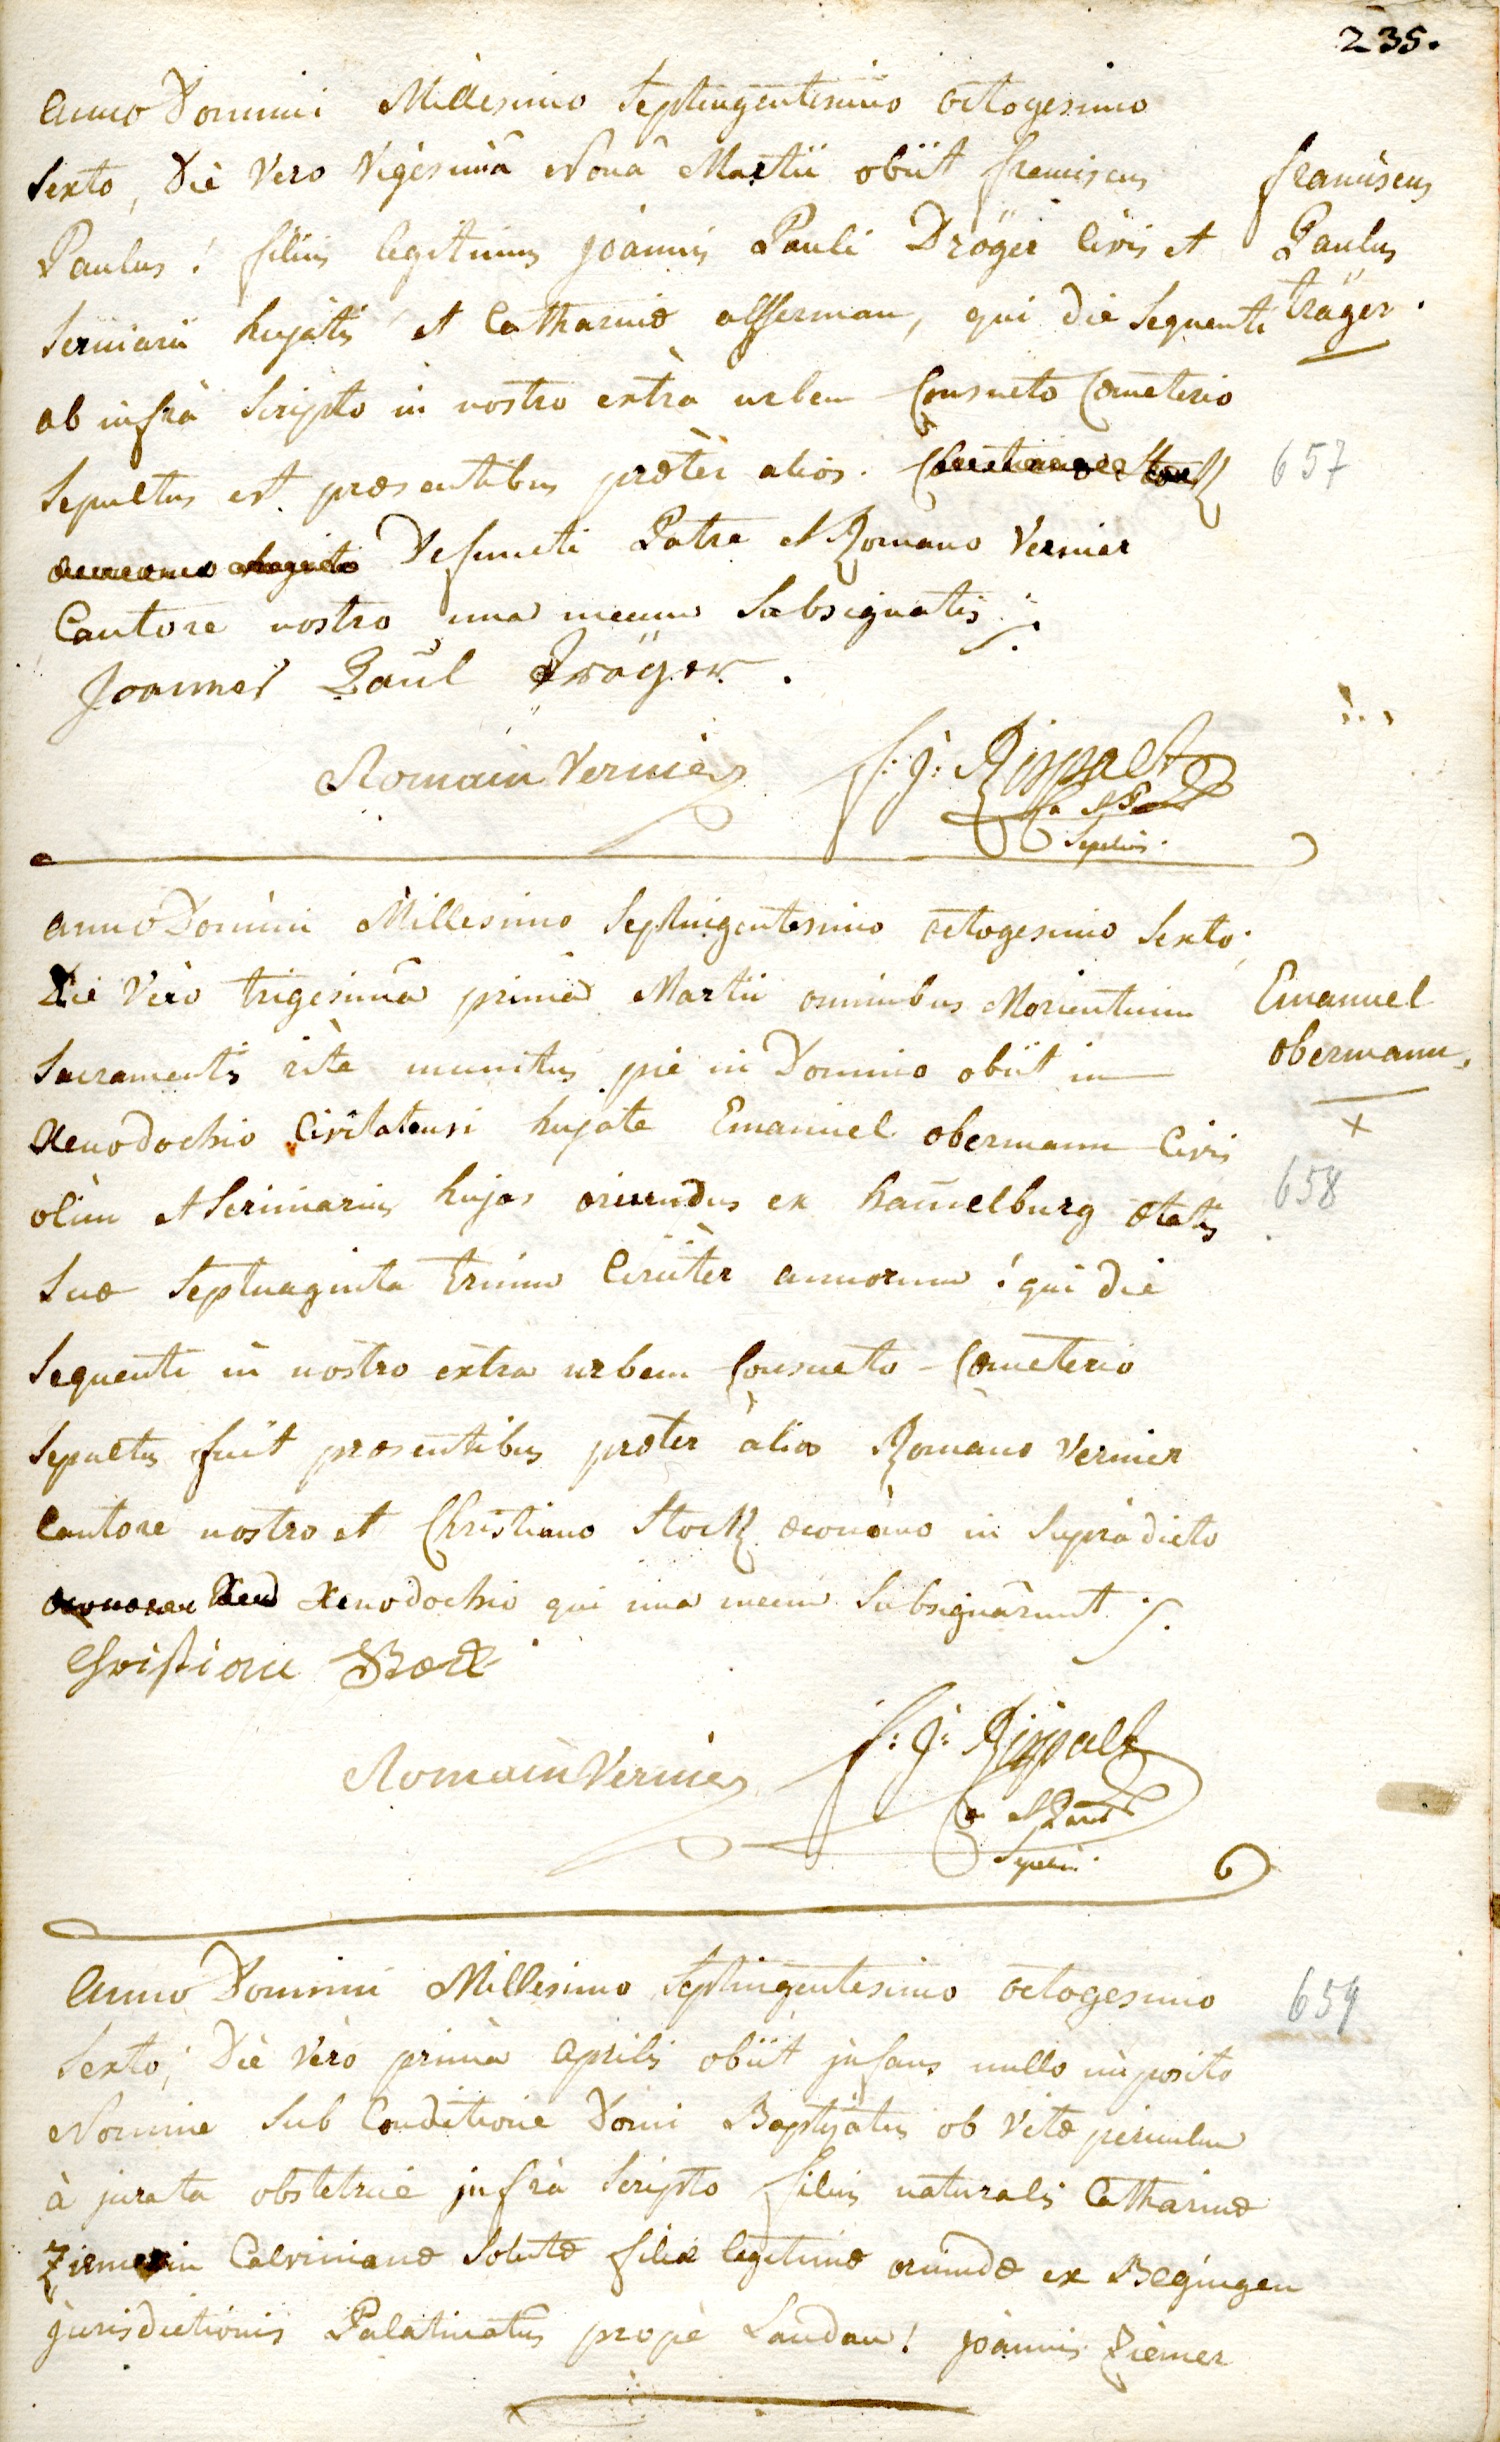 235.
Anno Domini Millesimo Septingentesimo octogesimo
Sexto, Die Vero Vigesimâ Nonâ Martii obiit franciscus
Paulus! filius legitimus Joannis Pauli Dröger Civis et
Scriniarii hujatis et Catharinæ Asserman, qui die sequenti
ab infrà Scripto in nostro extrà urbem Consueto Cœmeterio
Sepultus est præsentibus prætèr alios.
Defuncti Patre et Romano Vernier
Cantore nostro una mecum Subsignatis ./.
franciscus
Paulus
träger.
657
Joannes Paul Dräger.
Romain Vernier
f: J: Rippalt
Sepelivi.
Anno Domini Millesimo Septingentesimo octogesimo Sexto;
Die Vèro trigesimâ primâ Martii omnibus Morientium
Sacramentis ritè munitus piè in Domino obiit in
Xenodochio Civitatensi hujate Emanuel obermann Civis
olim et Scriniarius hujas oriundus ex hamelburg ætatis
Suæ Septuaginta trium Circitèr annorum! qui die
Sequenti in nostro extra urbem Consueto Cœmeterio
Sepultus fuit præsentibus prætèr alios Romano Vernier
Cantore nostro et Christiano Stock œconomo in Suprà dicto
Xenodochio qui una mecum Subsignârunt ./.
Emanuel
obermann.
+
658
Christian
Romain Vernier
f: J: Rippalt
Sepelivi.
Anno Domini Millesimo Septingentesimo octogesimo
Sexto; Die Vèrò primâ Aprilis obiit jnfans nullo imposito
Nomine Sub Conditione Domi Baptizatus ob Vitæ periculum
à jurata obstetrice jnfrà Scripto filius naturalis Catharinæ
Ziemerin Calvinianæ Solutæ filiæ legitimæ oriundæ ex Begingen
jurisdictionis Palatinatus propè Landau! joannis Ziemer
659